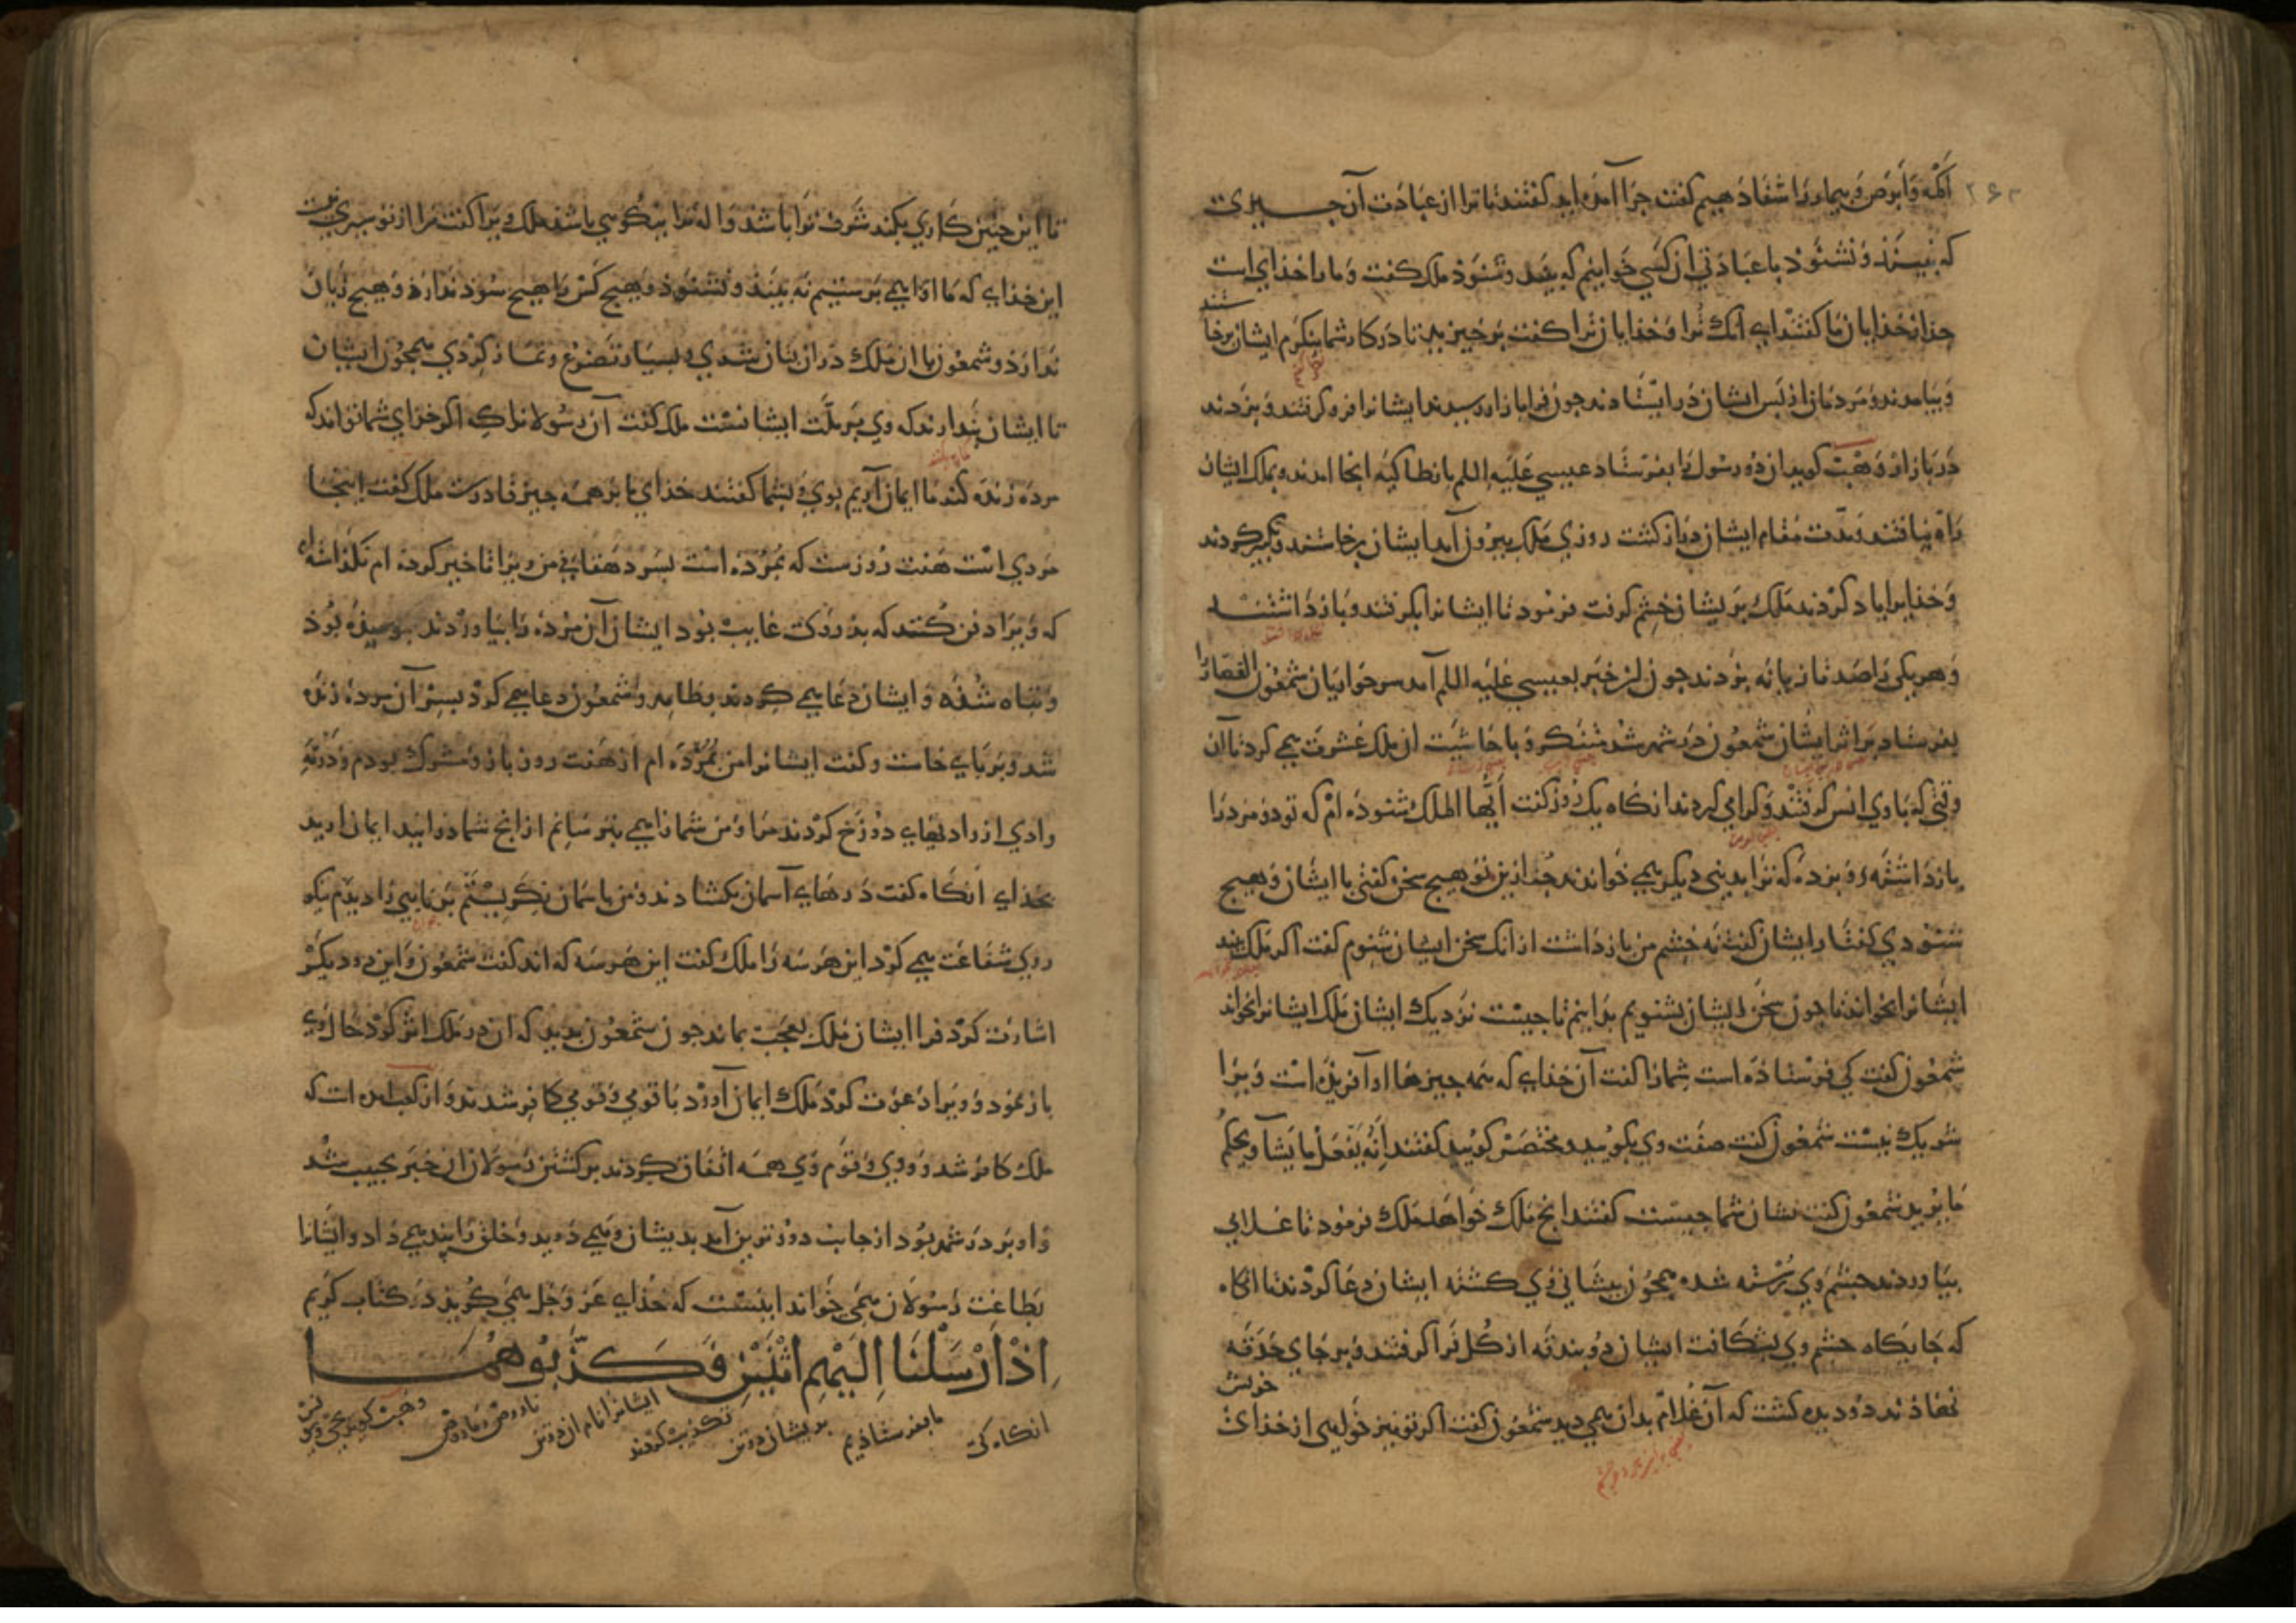 اكمه و ابرص و بیمار را شفا دهیم گفت چرا آمده اید گفتند تا ترا از عبادت آن چیزی
که نبیند و نشنود با عبادتی ان کسی خوانیم که بیند و شنود ملک گفت و ما را خدای است
جذاز خدایان ما گفتند ای آنک ترا و خدایان ترا کفت برخیزید تا در کار شما بنکرم ایشان برخا
ستند
و بیامدند و مردمان از پس ایشان در ایستادند جون فرا بازار رسیدند ایشانرا فرو کرفتند و بزدند
در بازار وهب کوید ان دو رسول را بفرستاد عیسی علیه اللم بانطاکیه انجا امدند و بملک ایشان
راه نیافتند و مدت مقام ایشان دراز کشت روزی ملک بیرون آمد ایشان برخاستند و تکبیر کردند
و خدایرا یاد کردند ملک بریشان خشم کرفت فرمود تا ایشانرا بکرفتند و بازداشتند
و هر یکی را صد تازیانه بزدند جون این خبر بعیسی علیه اللم آمد سر حواریان شمعون القصار را
بفرستاد بر اثر ایشان شمعون در شهر شد متنکر و با حاشیت ان ملک عشرت می کرد تا آن
وقتی که با وی انس کرفتند و کرامی کردند انکاه یک روز کفت ایها الملک شنوده ام که تو دو مرد را
بازداشته و بزده که ترا بدینی دیکر همی خواندند جذ ازین تو هیچ سخن کفتی با ایشان و هیچ
شنودی کفتار ایشان کفت نه خشم من بازداشت از انک سخن ایشان شنوم کفت اکر ملک بیند
ایشانرا بخواند تا جون سخن ایشان بشنویم بدانیم تا جیست نزدیک ایشان ملک ایشانرا بخواند
شمعون کفت کی فرستاذه است شما را کفت آن خدای که همه جیزها او آفریده است و ویرا
شریک نیست شمعون کفت صفت وی بکویید و مختصر کویید کفتند انه یفعل ما یشا و یحکم
ما یرید شمعون کفت نشان شما جیست کفتند انج ملک خواهد ملک فرمود تا غلامی
بیاوردند جشم وی رسته شده همجون پیشانی وی کشته ایشان دعا کردند تا انکاه
که جایکاه جشم وی بشکافت ایشان دو بندقه از کل فرا کرفتند و بر جای حدقه
خویش
نهاذند دو دیده کشت که آن غلام بدان می دید شمعون کفت اکر تو نیز خواهی از خدای
تا این جنین کاری بکند شرف ترا باشد و اله ترا نیکویی باشد ملک ویرا کفت مرا از تو سری نیست
این خدای که ما او را می پرستیم نه بیند و نشنود و هیچ کس را هیچ سوذ ندارد و هیچ زیان
ندارذ و شمعون با ان ملک در ان بتان شدی و بسیار تضرع و نماز کردی همجون ایشان
تا ایشان پندارند که وی بر ملت ایشانست ملک کفت آن رسولانرا که اکر خدای شما تواند که
مرده زنده کند ما ایمان آریم بوی و بشما کفتند خدای ما بر همه جیز قادرست ملک کفت اینجا
مردی است هفت روزست که بمرده است پسر دهقانی من ویرا تاخیر کرده ام نکذاشته ام
که ویرا دفن کنند که پدر وی غایب بود ایشان آن مرده را بیاوردند پوسیده بود
و تباه شده و ایشان دعا می کردند بظاهر و شمعون دعا می کرد بسر آن مرده زنده
شد و بر پای خاست و کفت ایشانرا من بمرده ام از هفت روز باز و مشرک بودم و در نه
وادی از وادیهای دوزخ کردند مرا و من شما را می بترسانم از انج شما درانید ایمان ارید
بخدای انکاه کفت درهای آسمان بکشادند و من باسمان نکریستم برنایی را دیدم نیکو
روی شفاعت می کرد این هر سه را ملک کفت این هر سه که اند کفت شمعون و این دو دیکر
اشارت کرد فرا ایشان ملک بعجب بماند جون شمعون بدید که ان در ملک اثر کرد حال وی
باز نمود و ویرا دعوت کرد ملک ایمان آورد با قومی و قومی کافر شدند و از کعب امده است که
ملک کافر شد و وی و قوم وی همه اتفاق کردند بر کشتن رسولان این خبر بحبیب شد
و او بر در شهر بود از جانب دورترین آمد بدیشان و می دوید و خلق را پند می داد و ایشانرا
بطاعت رسولان همی خواند اینست که خذای عز و جل همی کوید در کتاب کریم
اِذْ اَرْسَلْنَا اِلَيْهِمِ اثْنَيْنِ فَكَذَّبُوهُمَا
انکاه کی ما بفرستاذیم بدیشان دو تن تکذیب کردند ایشانرا نام ان دو تن